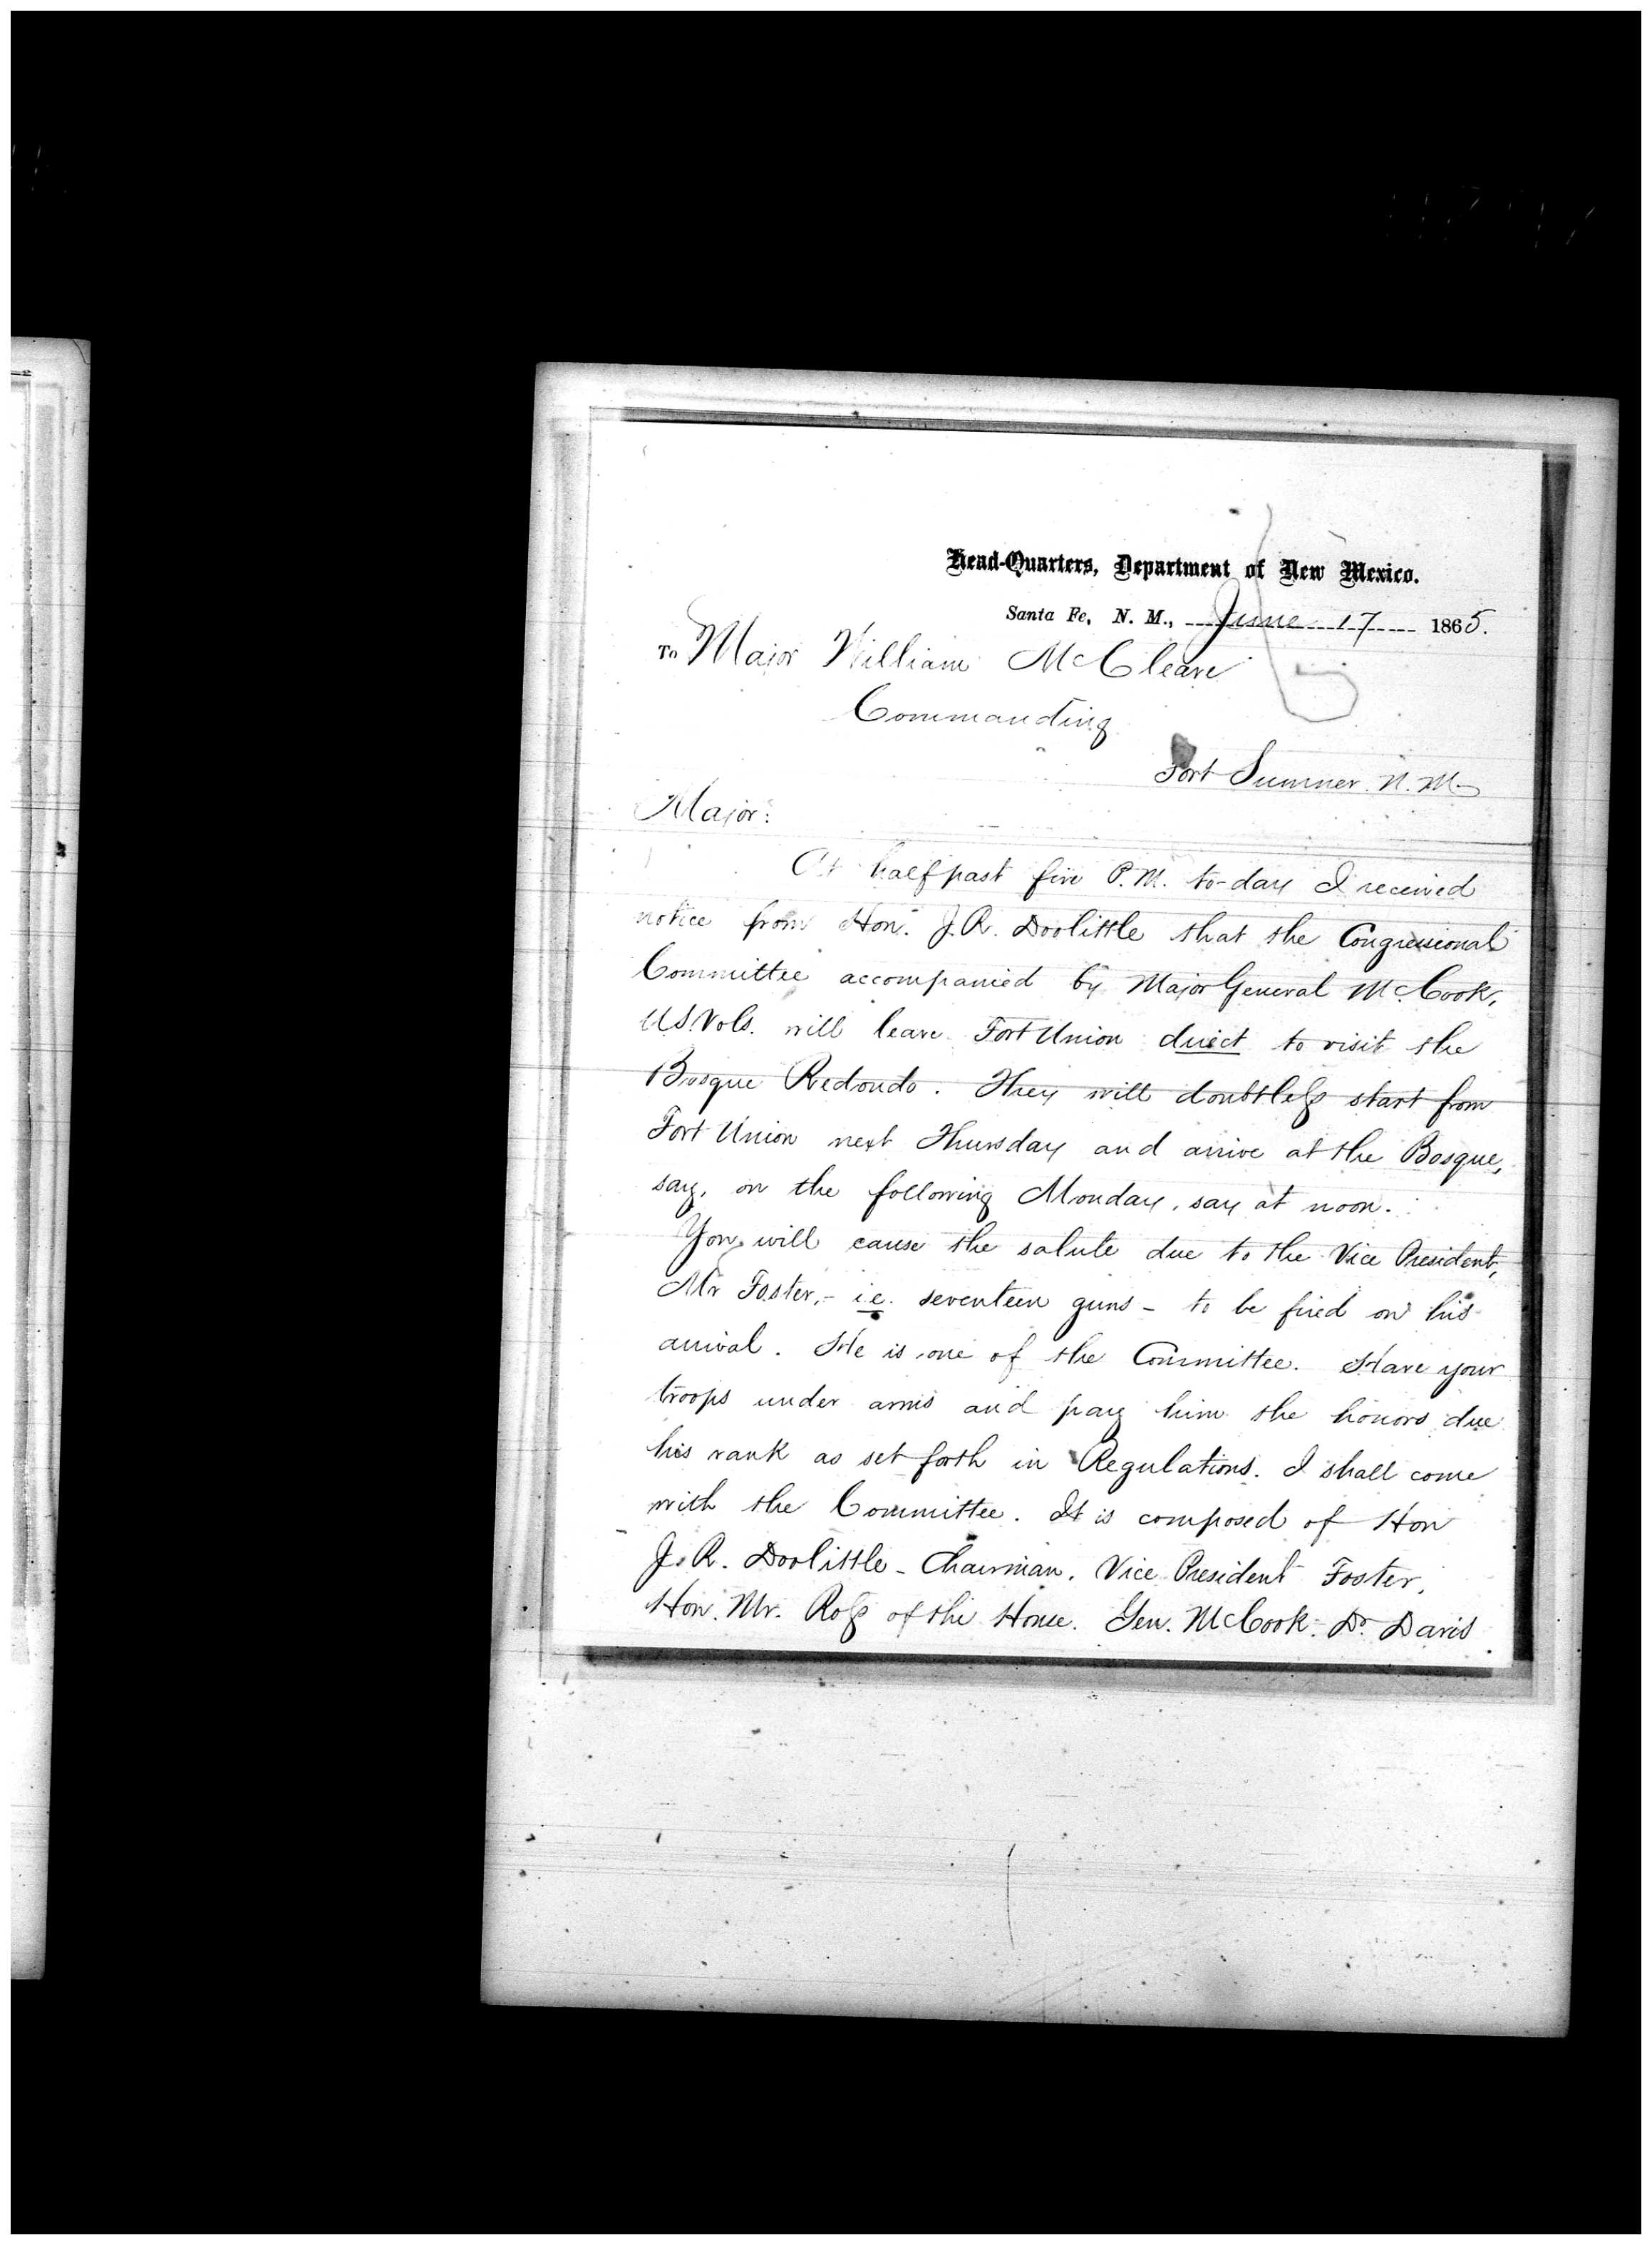 Head-Quarters, Department of New Mexico.
Santa Fe, N. M., June 17 1865.
To Major William McCleave
Commanding
Fort Sumner. N. M.
Major:
At half past five P.M. to-day I received
notice from Hon. J. R. Doolittle that the Congressional
Committee accompanied by Major General McCook,
U.S. Vols. will leave Fort Union direct to visit the
Bosque Redondo. They will doubtless start from
Fort Union next Thursday and arrive at the Bosque,
say, on the following Monday, say at noon.
You will cause the salute due to the Vice President,
Mr Foster, - i.e. seventeen guns - to be fired on his
arrival. He is one of the Committee. Have your
troops under arms and pay him the honors due
his rank as set forth in Regulations. I shall come
with the Committee. It is composed of Hon
J. R. Doolittle - Chairman. Vice President Foster,
Hon. Mr. Ross of the House. Gen. McCook. Dr. Davis